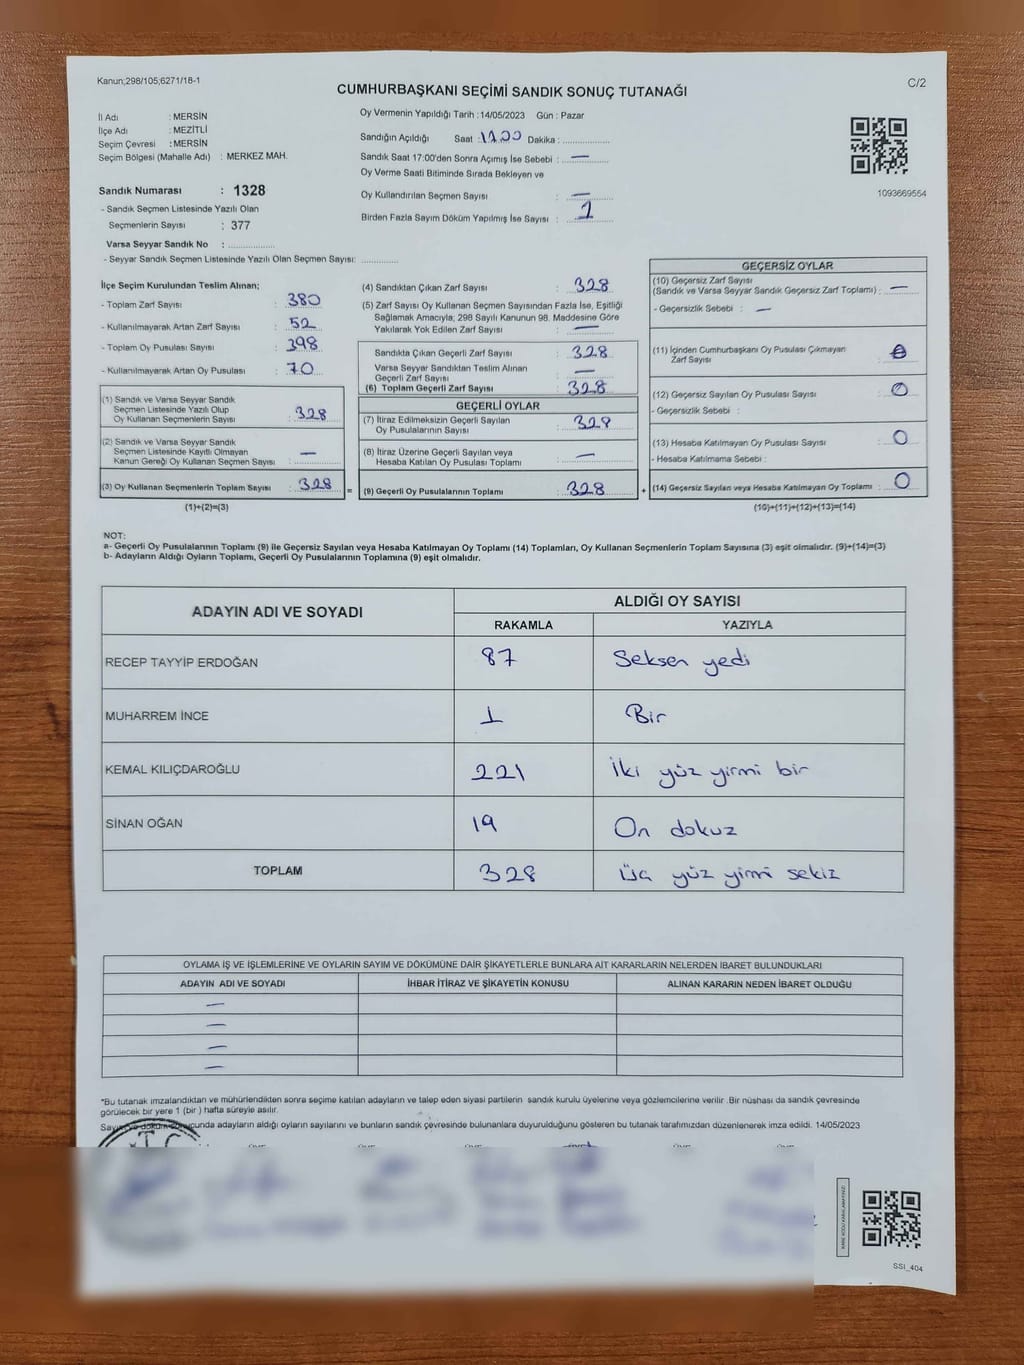 Kanun;298/105;6271/18-1
C/2
CUMHURBAŞKANI SEÇİMİ SANDIK SONUÇ TUTANAĞI
İl Adı : MERSİN
İlçe Adı : MEZİTLİ
Seçim Çevresi : MERSİN
Seçim Bölgesi (Mahalle Adı) : MERKEZ MAH.
Sandık Numarası : 1328
- Sandık Seçmen Listesinde Yazılı Olan
Seçmenlerin Sayısı : 377
Varsa Seyyar Sandık No : ..............
- Seyyar Sandık Seçmen Listesinde Yazılı Olan Seçmen Sayısı: ............
Oy Vermenin Yapıldığı Tarih :14/05/2023 Gün : Pazar
Sandığın Açıldığı Saat : Dakika : ..............
Sandık Saat 17:00'den Sonra Açımış İse Sebebi : —
Oy Verme Saati Bitiminde Sırada Bekleyen ve
Oy Kullandırılan Seçmen Sayısı : —
Birden Fazla Sayım Döküm Yapılmış İse Sayısı : 1
1093669554
İlçe Seçim Kurulundan Teslim Alınan;
- Toplam Zarf Sayısı : 380
- Kullanılmayarak Artan Zarf Sayısı : 52
- Toplam Oy Pusulası Sayısı : 398
- Kullanılmayarak Artan Oy Pusulası : 70
(1) Sandık ve Varsa Seyyar Sandık
Seçmen Listesinde Yazılı Olup
Oy Kullanan Seçmenlerin Sayısı : 328
(2) Sandık ve Varsa Seyyar Sandık
Seçmen Listesinde Kayıtlı Olmayan
Kanun Gereği Oy Kullanan Seçmen Sayısı : —
(3) Oy Kullanan Seçmenlerin Toplam Sayısı : 328 =
(1)+(2)=(3)
(4) Sandıktan Çıkan Zarf Sayısı : 328
(5) Zarf Sayısı Oy Kullanan Seçmen Sayısından Fazla İse, Eşitliği
Sağlamak Amacıyla; 298 Sayılı Kanunun 98. Maddesine Göre
Yakılarak Yok Edilen Zarf Sayısı : —
Sandıkta Çıkan Geçerli Zarf Sayısı : 328
Varsa Seyyar Sandıktan Teslim Alınan
Geçerli Zarf Sayısı : —
(6) Toplam Geçerli Zarf Sayısı : 328
GEÇERLİ OYLAR
(7) İtiraz Edilmeksizin Geçerli Sayılan
Oy Pusulalarının Sayısı : 328
(8) İtiraz Üzerine Geçerli Sayılan veya
Hesaba Katılan Oy Pusulası Toplamı : —
(9) Geçerli Oy Pusulalarının Toplamı : 328 +
GEÇERSİZ OYLAR
(10) Geçersiz Zarf Sayısı
(Sandık ve Varsa Seyyar Sandık Geçersiz Zarf Toplamı) : —
- Geçersizlik Sebebi : —
(11) İçinden Cumhurbaşkanı Oy Pusulası Çıkmayan
Zarf Sayısı :
(12) Geçersiz Sayılan Oy Pusulası Sayısı : 0
- Geçersizlik Sebebi :
(13) Hesaba Katılmayan Oy Pusulası Sayısı : 0
- Hesaba Katılmama Sebebi :
(14) Geçersiz Sayılan veya Hesaba Katılmayan Oy Toplamı : 0
(10)+(11)+(12)+(13)=(14)
NOT:
a- Geçerli Oy Pusulalarının Toplamı (9) ile Geçersiz Sayılan veya Hesaba Katılmayan Oy Toplamı (14) Toplamları, Oy Kullanan Seçmenlerin Toplam Sayısına (3) eşit olmalıdır. (9)+(14)=(3)
b- Adayların Aldığı Oyların Toplamı, Geçerli Oy Pusulalarının Toplamına (9) eşit olmalıdır.
ADAYIN ADI VE SOYADI
ALDIĞI OY SAYISI
RAKAMLA YAZIYLA
RECEP TAYYİP ERDOĞAN 87 Seksen yedi
MUHARREM İNCE 1 Bir
KEMAL KILIÇDAROĞLU 221 İki yüz yirmi bir
SİNAN OĞAN 19 On dokuz
TOPLAM 328 Üç yüz yirmi sekiz
OYLAMA İŞ VE İŞLEMLERİNE VE OYLARIN SAYIM VE DÖKÜMÜNE DAİR ŞİKAYETLERLE BUNLARA AİT KARARLARIN NELERDEN İBARET BULUNDUKLARI
ADAYIN ADI VE SOYADI İHBAR İTİRAZ VE ŞİKAYETİN KONUSU ALINAN KARARIN NEDEN İBARET OLDUĞU
—
—
—
—
*Bu tutanak imzalandıktan ve mühürlendikten sonra seçime katılan adayların ve talep eden siyasi partilerin sandık kurulu üyelerine veya gözlemcilerine verilir .Bir nüshası da sandık çevresinde
görülecek bir yere 1 (bir ) hafta süreyle asılır.
adayların aldığı oyların sayılarını ve bunların sandık çevresinde bulunanlara duyurulduğunu gösteren bu tutanak tarafımızdan düzenlenerek imza edildi. 14/05/2023
T.C.
SSI_404